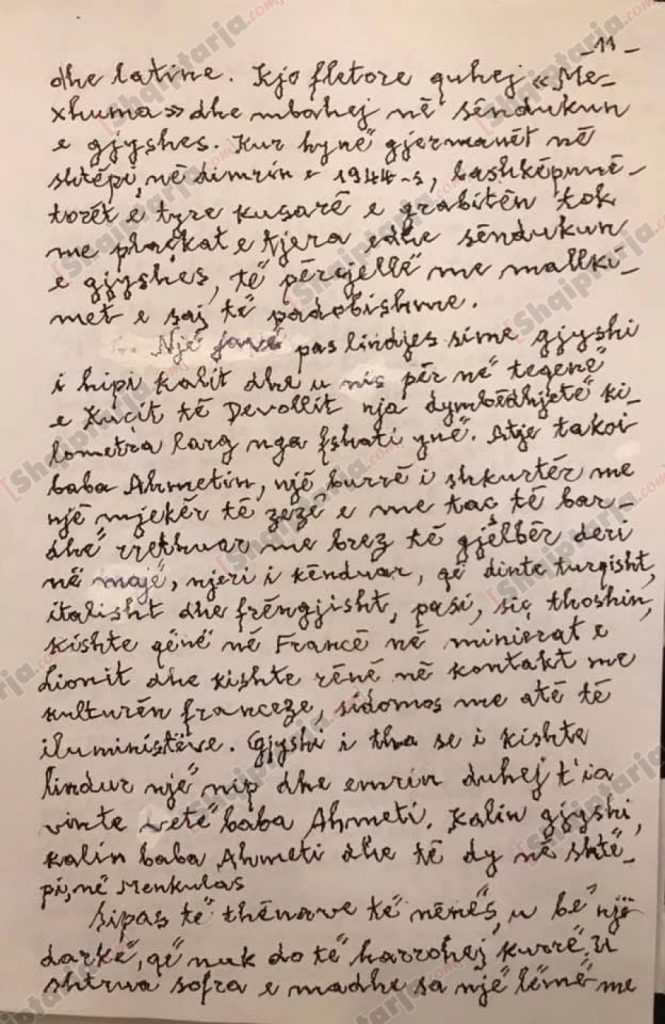 - 11 -
dhe latine. Kjo fletore quhej «Me-
xhuma» dhe mbahej në sëndukun
e gjyshes. Kur hynë gjermanët në
shtëpi, në dimrin e 1944-s, bashkëpunë-
torët e tyre kusarë e grabitën tok
me plaçkat e tjera edhe sëndukun
e gjyshes, të përcjellë me mallki-
met e saj të padobishme.
Një javë pas lindjes sime gjyshi
i hipi kalit dhe u nis për në teqenë
e Kuçit të Devollit nja dymbëdhjetë ki-
lometra larg nga fshati ynë. Atje takoi
baba Ahmetin, një burrë i shkurtër me
një mjekër të zezë e me taç të bar-
dhë rrethuar me brez të gjelbër deri
në majë, njeri i kënduar, që dinte turqisht,
italisht dhe frëngjisht, pasi, siç thoshin,
kishte qënë në Francë në minierat e
Lionit dhe kishte rënë në kontakt me
kulturën franceze, sidomos me atë të
iluministëve. Gjyshi i tha se i kishte
lindur një nip dhe emrin duhej t'ia
vinte vetë baba Ahmeti. Kalin gjyshi,
kalin baba Ahmeti dhe të dy në shtë-
pi, në Menkulas
Sipas të thënave të nënës, u bë një
darkë, që nuk do të harrohej kurrë. U
shtrua sofra e madhe sa një lëmë me
Shqiptarja.com